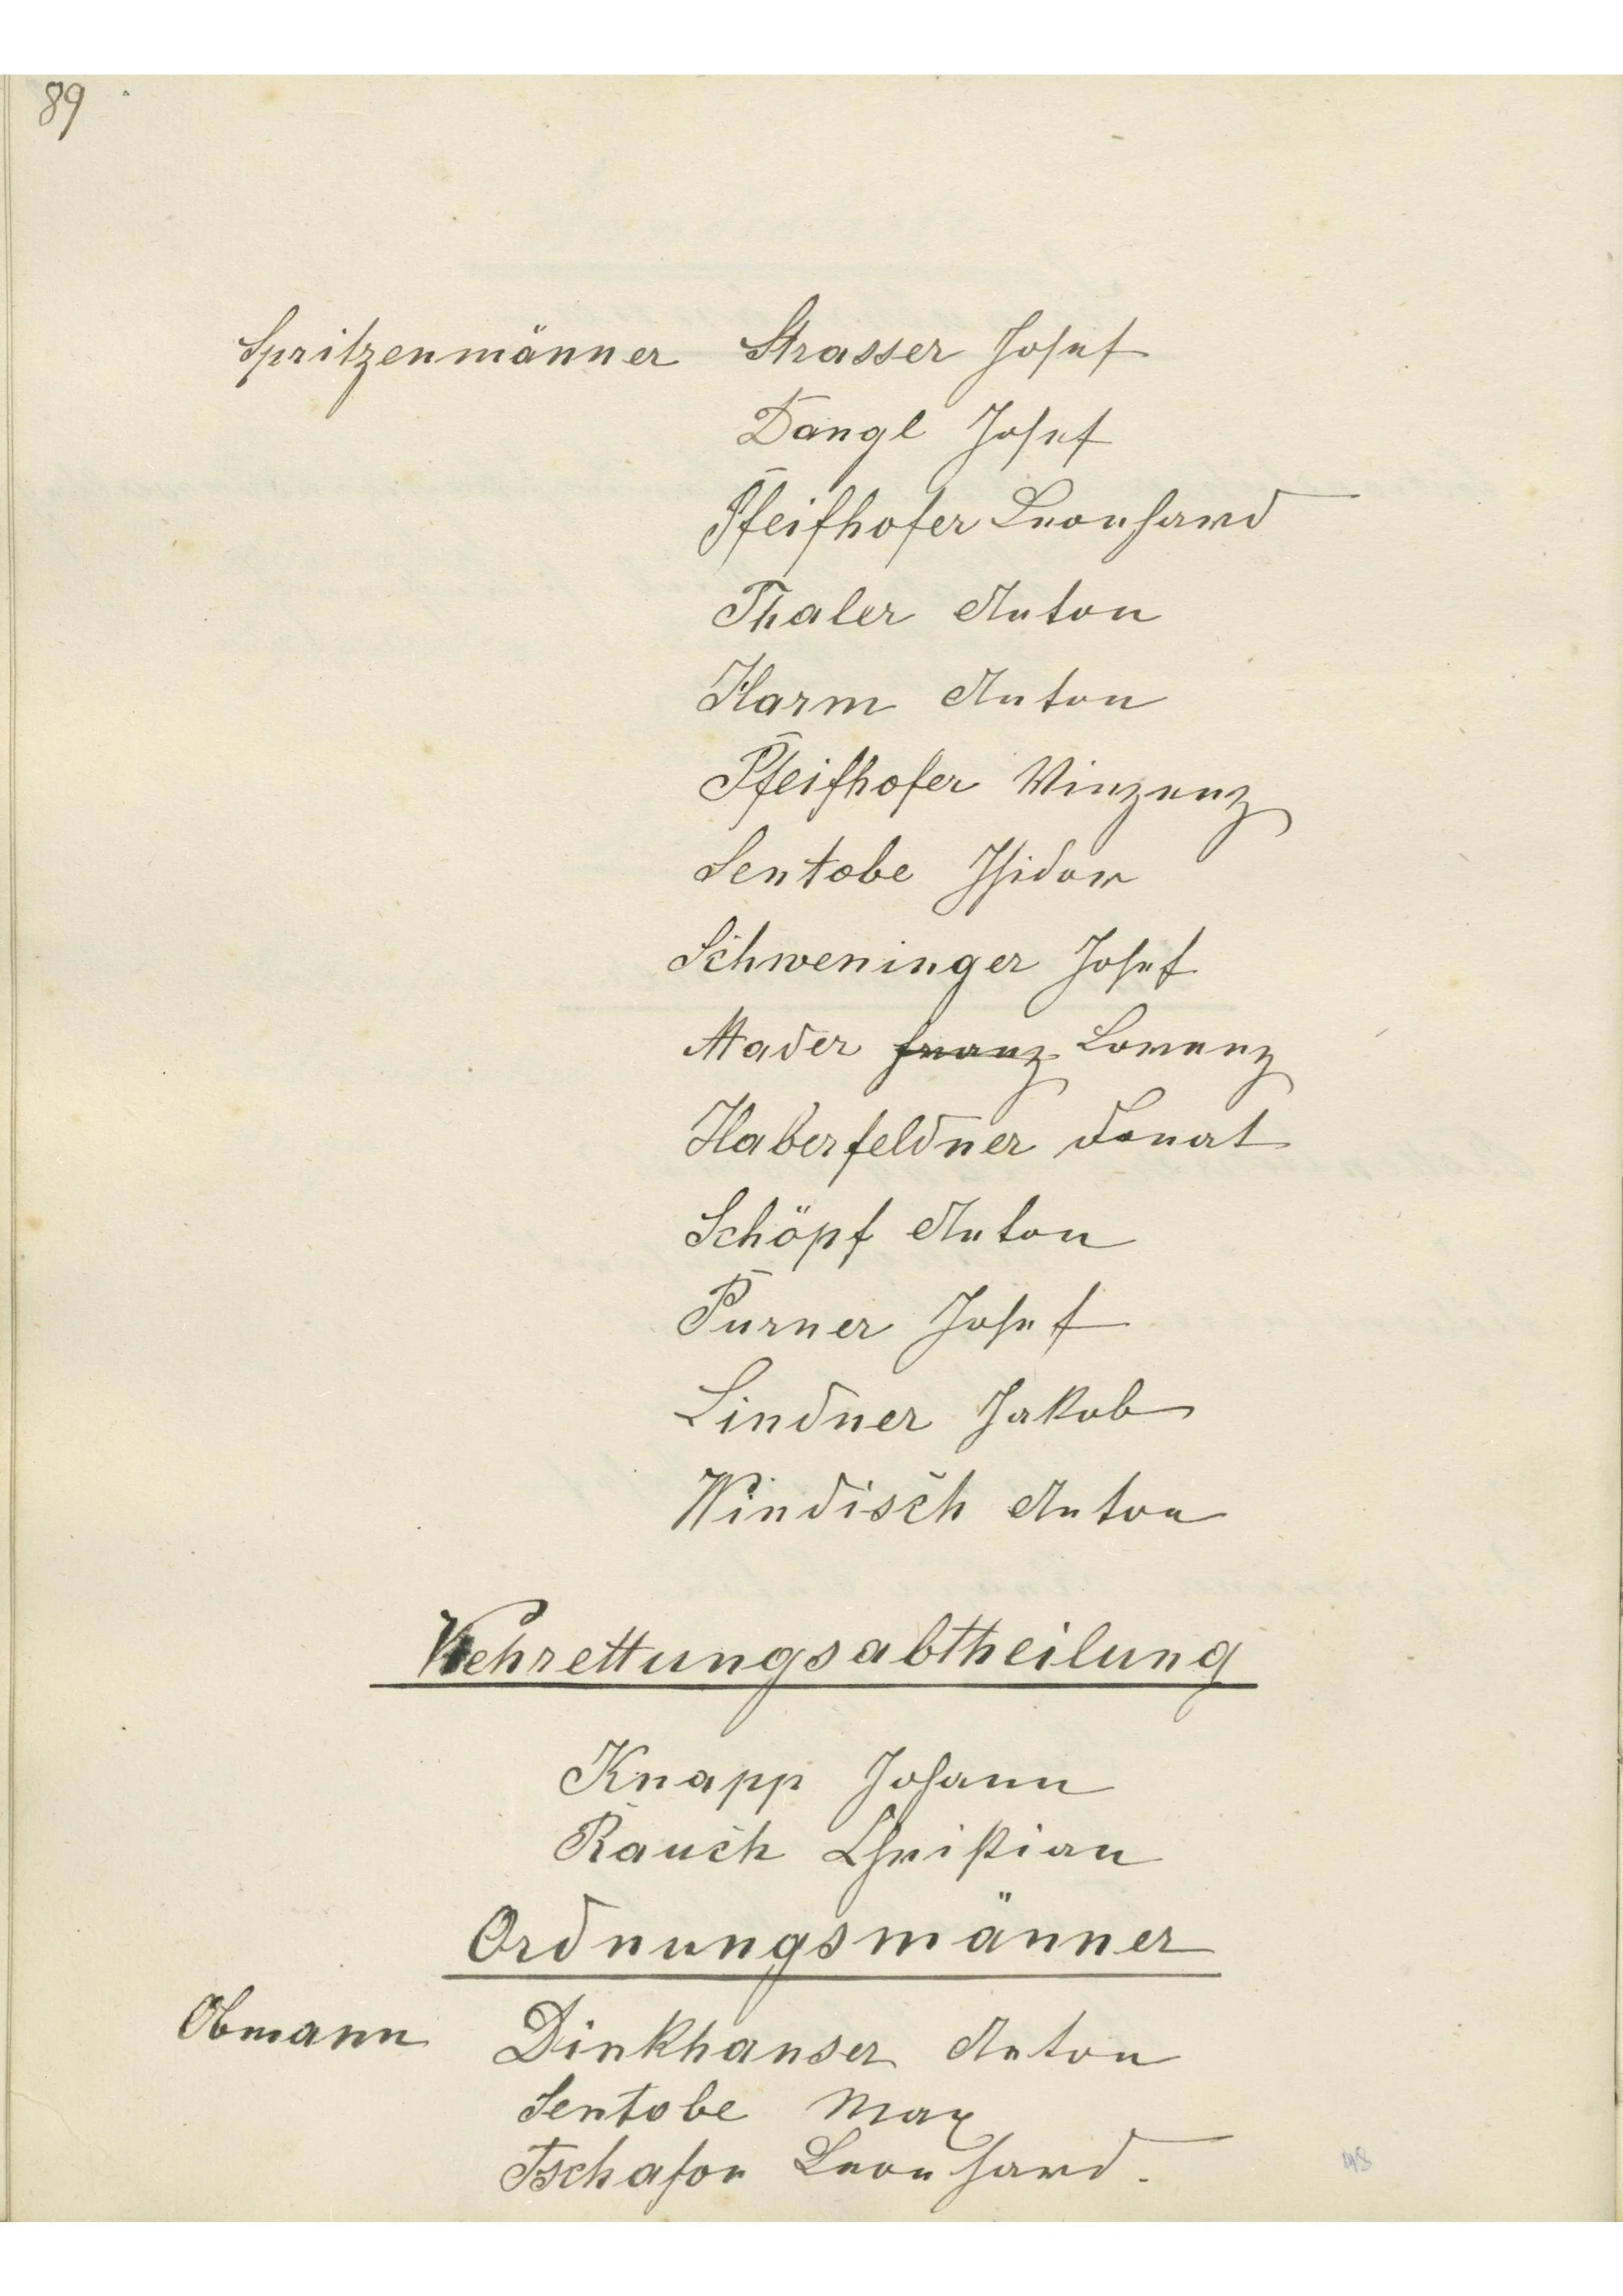 89
Spritzenmänner Strasser Josef
Dangl Josef
Pfeifhofer Leonhard
Thaler Anton
Harm Anton
Pfeifhofer Vinzenz
Sentobe Isidor
Schweninger Josef
Mader Franz Lorenz
Haberfeldner Donat
Schöpf Anton
Purner Josef
Lindner Jakob
Windisch Anton
Viehrettungsabtheilung
Knapp Johann
Rauch Christian
Ordnungsmänner
Obmann Dinkhauser Anton
Sentobe Max
Tschafon Leonhard.
48